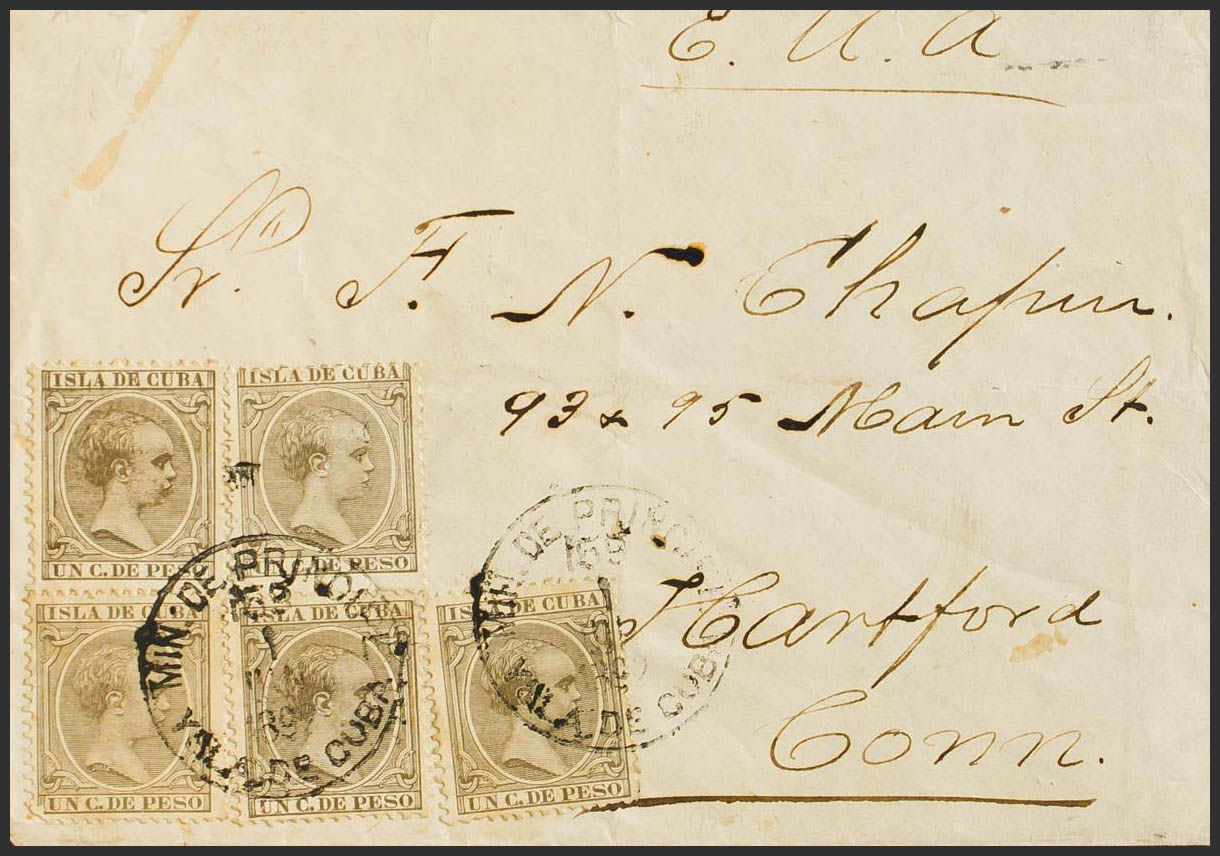 E. U. A
Sr. F. N. Chapin.
93 & 95 Main St.
Hartford
Conn.
ISLA DE CUBA
UN C. DE PESO
ISLA DE CUBA
UN C. DE PESO
ISLA DE CUBA
UN C. DE PESO
ISLA DE CUBA
UN C. DE PESO
ISLA DE CUBA
UN C. DE PESO
ADMIN. DE
DE CUBA
DE
DE CUBA